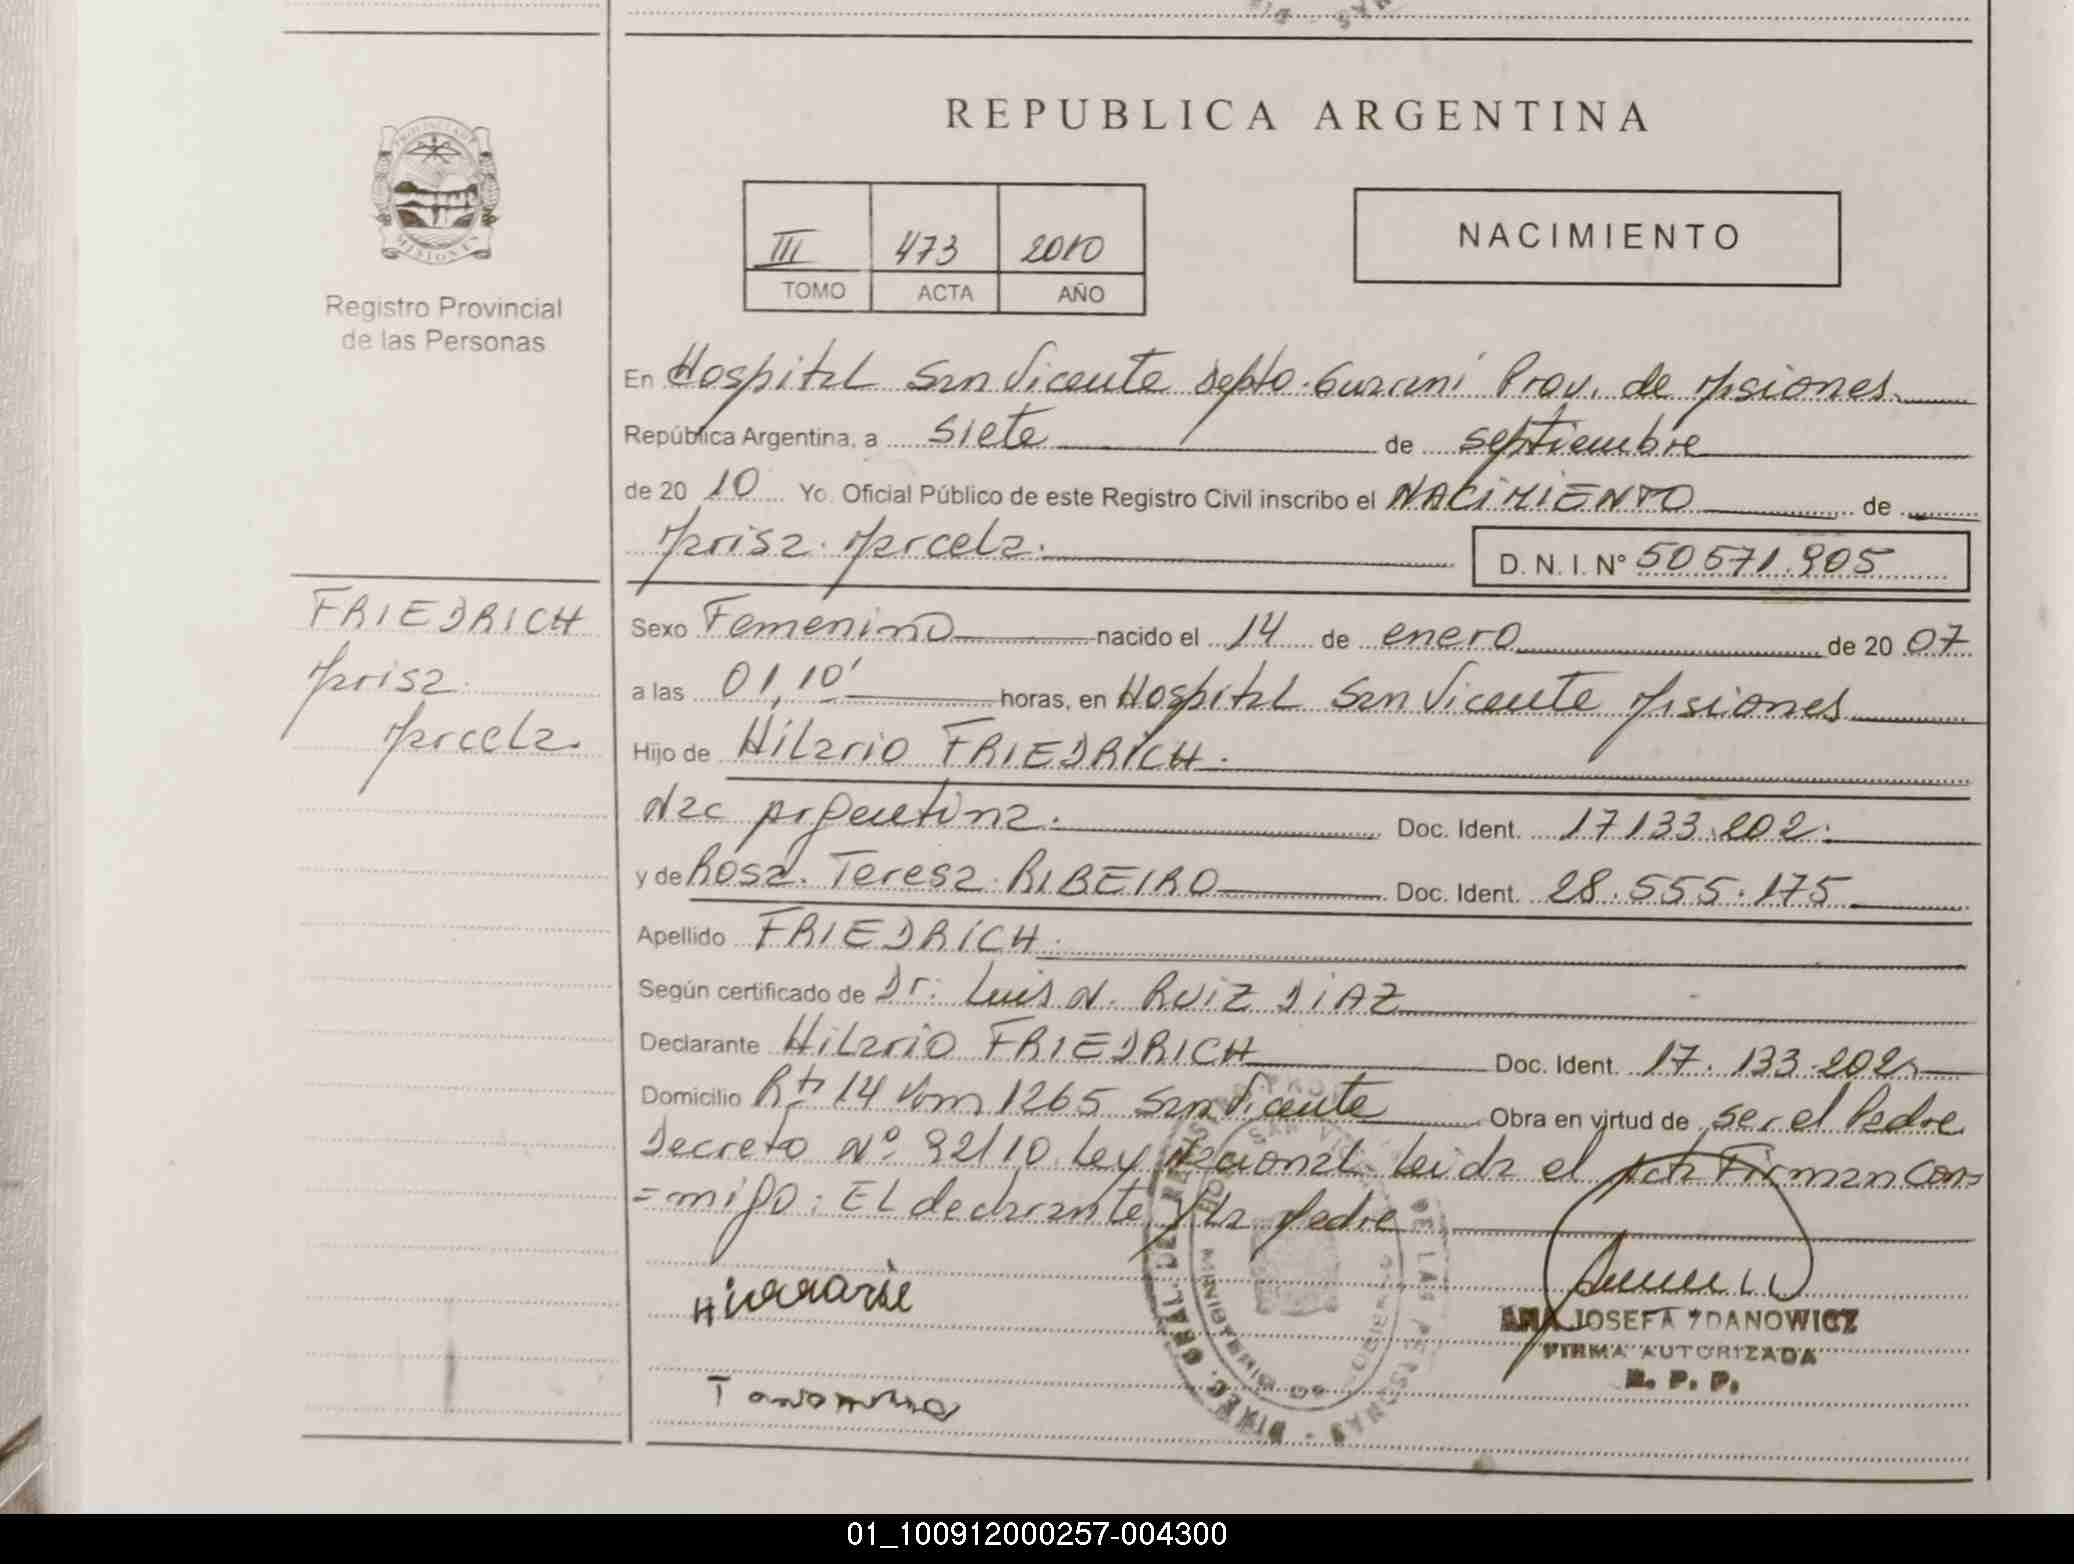 REPUBLICA ARGENTINA
PROVINCIA DE
MISIONES
Registro Provincial
de las Personas
III 473 2010
TOMO ACTA AÑO
NACIMIENTO
En Hospital San Vicente Depto. Guarani Prov. de Misiones
República Argentina, a siete de septiembre
de 20 10 Yo. Oficial Público de este Registro Civil inscribo el NACIMIENTO de
Marisa Marcela.
D. N. I. Nº 50571.905
FRIEDRICH
Marisa
Marcela.
Sexo Femenino nacido el 14 de enero de 20 07
a las 01,10' horas, en Hospital San Vicente Misiones
Hijo de Hilario FRIEDRICH.
Nac Argentina. Doc. Ident. 17133.202.
y de Rosa Teresa RIBEIRO Doc. Ident. 28.555.175
Apellido FRIEDRICH.
Según certificado de Dr. Luis N. RUIZ DIAZ
Declarante Hilario FRIEDRICH Doc. Ident. 17.133.202
Domicilio Rta 14 Km 1265 San Vicente Obra en virtud de ser el Padre
Decreto Nº 92/10 Ley Nacional Leida el Acta Firman con=
=migo: El declarante y la Madre
ANA JOSEFA ZDANOWICZ
FIRMA AUTORIZADA
R. P. P.
DIREC. GRAL. DEL REGISTRO PROV. DE LAS PERSONAS
MINISTERIO DE GOBIERNO
01_100912000257-004300